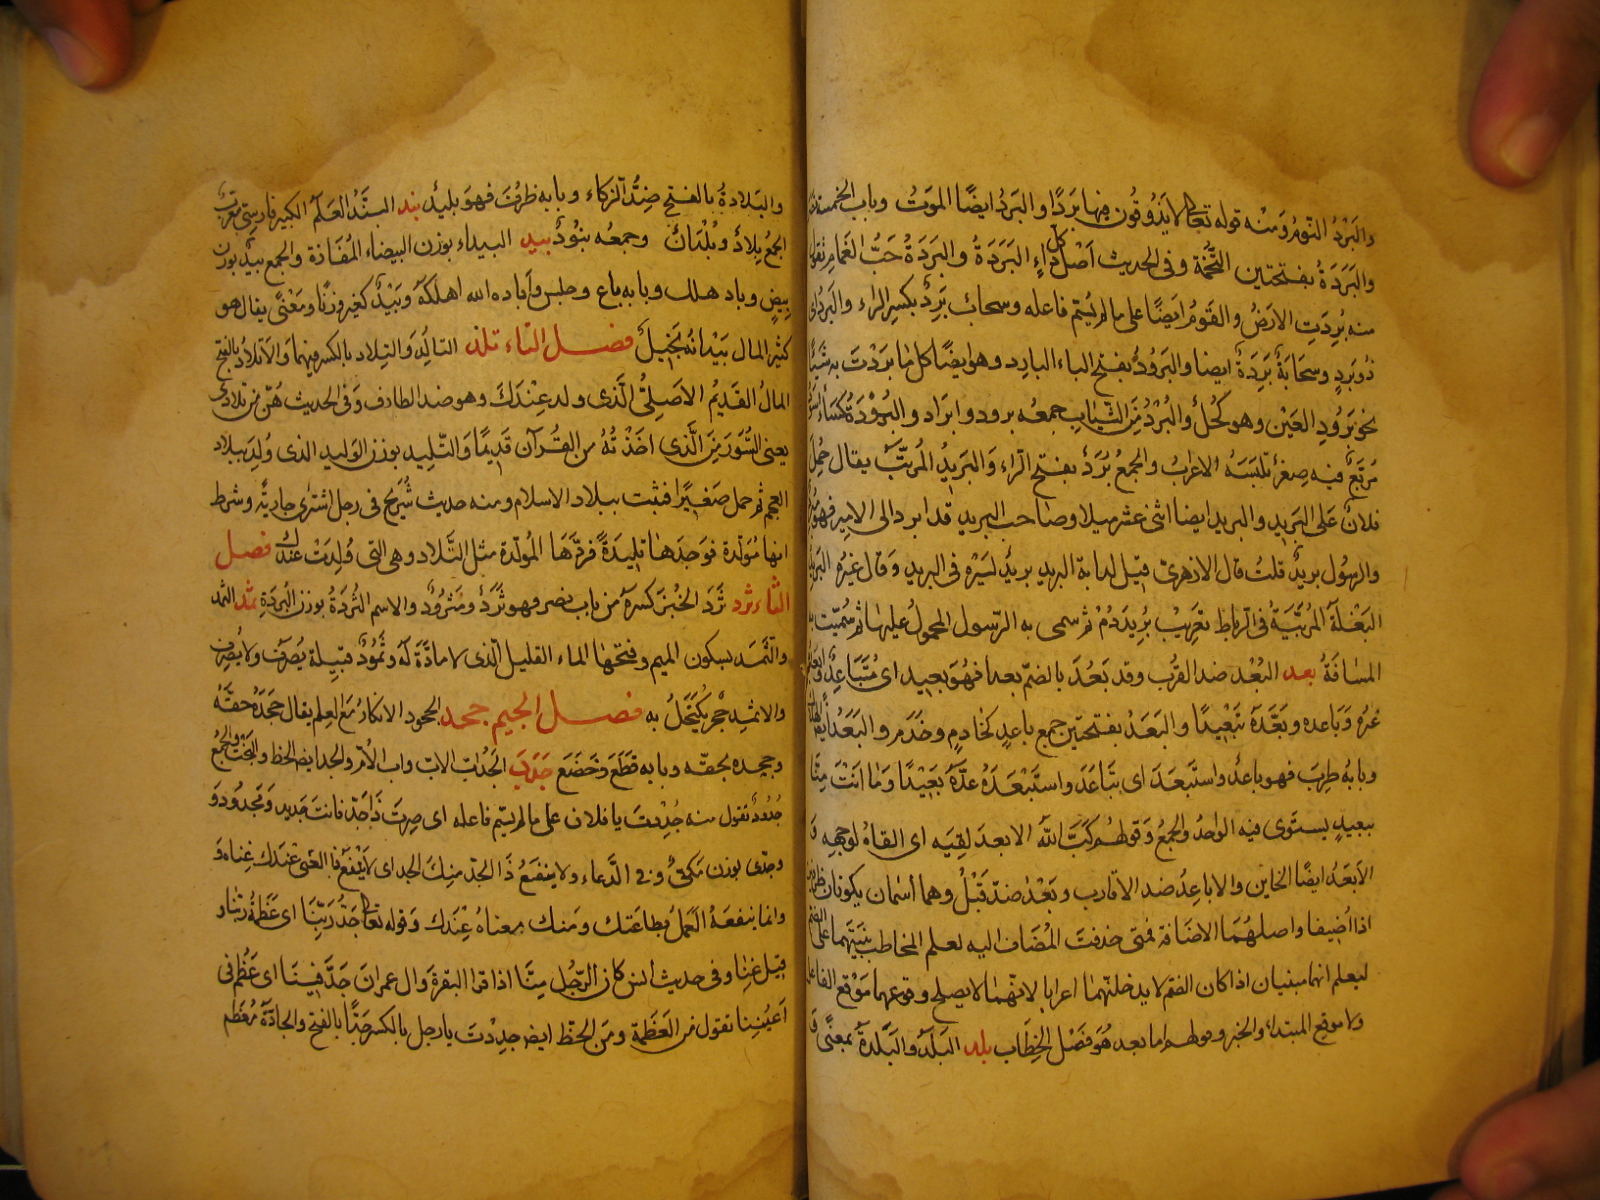 والبَرْدُ النّومُ وَمنْه قوله تعالى لا يَذُوقون فيها بَردًا والبَردُ ايضًا الموَتُ وباب الخمسة
والبَرَدَةُ بفتحتين التُّخَمَة وفى الحديث اَصْل كل دَاءٍ البَرَدَةُ والبَرَدَةُ حَبُّ الغَمام تقول
منه بُرِدَتِ الارَضُ والقَومُ ايَضًا على ما لم يُسَمّ فاعله وسحابٌ بَرِدٌ بكسر الراء والبَرْدُ اى
ذُو بَردٍ وسحَابَةٌ بَرِدَةٌ ايضا والبَرُودُ بفتح الباء البارِد وهو ايضًا كل ما بَردْتَ به شَيْئًا
نحو بَرُودِ العَيْن وهو كُحْلٌ والبُرْدُ مِنَ الثّيابِ جمعُه برود وابرَاد والبُرْدَةُ كسَاءٌ اَسوَد
مُربّعٌ فيه صِغَرٌ تلبَسَهُ الاعرابُ والجمعُ بُرَدٌ بفتح الرَاء وَالبَريدُ المُرتّبُ يقال حُمِلَ
فلانٌ عَلى البَريد والبريد ايضا اثنى عشر ميلا وصَاحب البريد قد ابرد الى الامير فهو مُبْرِدٌ
والرسُول بريدٌ قلتُ قال الازهرىّ قيل لدابة البريد بريدٌ لسَيْره فى البريد وَقال غيرُه البَريدُ
البَغْلَة المُرَتَّبَةُ فى الرباط تعَريب بُرِيدَه دُمْ ثم سمى به الرّسول المحمول عليها ثم سُمّيت به
المسَافَةُ بعد البُعْد ضد القُرب وقد بَعُدَ بالضّم بعدا فهُوَ بَعيد اى مُتَبَاعِدٌ وابعَدَهُ
غيُره وَبَاعده وبَعَّدَهُ تبَعْيدًا والبَعَدُ بفتحتين جمع باعدٍ كخادمٍ وخَدَمٍ والبَعَدُ ايضًا الهلاك
وبابُهُ طرِبَ فهو باعدٌ واستَبعَدَ اى تبَاعَدَ واستَبْعَدَهُ عدَّهُ بَعَيْدًا وَما انَتْ مِنّا
ببعيدٍ يستَوى فيه الواحدُ والجمعُ وَقولهُم كَبَّ اللهُ الابعدَ لِفِيَه اى القاهُ لوجهِه وَ
الاَبَعدُ ايضًا الخاين والاباعِدُ ضد الاقارب وبَعْدُ ضدّ قَبْلُ وهما اسْمان يكونان ظرفين
اذا اُضيفا واصلهُمَا الاضَافة فمتى حذفتَ المُضَاف اليه لعلم المخاطب بنَيْتَهما على الضّم
ليعلم انهما مبنيان اذا كان الضم لا يدخلهُما اعرابا لانّهُما لا يصلح وقوعهما مَوْقع الفاعل
ولا موقع المبتداء والخبر وقولهم اما بعد هُوَ فَصْل الخِطَابِ بلد البَلَدُ والبَلْدَة بمعنًى وَ
والبَلادةُ بالفتح ضِدُّ الزكاء وبابه ظرُفَ فهوَ بليدٌ بند البَنْدُ العَلَمُ الكبير فارسىّ معربٌ
الجمعُ بِلادٌ وبُلْدانٌ وجمعُه بنُودٌ بيد البيداء بوزن البيضاء المُفَازة والجمع بيدٌ بوزن
بِيضٍ وباد هلك وبابه باع وجلس وأباده الله اهلكَهُ وَبَيْدَ كغَير وَزنًا ومَعْنًى يقال هو
كثير المال بَيْدَ انهُ بَخيلٌ فصل التاء تلد التالِدُ والتِلاد بالكسر فيهما وَالاَتلادُ بالفتح
المالُ القَديمُ الاَصَلِىّ الَّذى ولد عِنْدَكَ وهو ضد الطارف وَفى الحديث هُنّ من تلادى
يعنى السُّوَرَ مِنَ الَّذى اخَذْتُهُ من القُرآن قَديمًا وَالتّلِيد بوزن الوَليد الذى وُلدَ ببلاد
العجم ثم حمل صَغيرًا فنبت ببلاد الاسلام ومنه حديث شُرَيح فى رجل اشترى جاريةً وشرط
انها مُوَلّدة فوَجدها تليدَةً فردَّهَا المُولّدة مثل التَّلاد وهى التى وُلِدَتْ عندك فصل
الثاء ثرد ثَرَدَ الخُبْز كسرَه من باب نصر فهو ثَرْدٌ ومَثرُودٌ والاسم الثُردَةُ بوزن البُردَةِ ثمد الثمْد
والثَمَد بسكون الميم وفتحها الماء القليل الّذى لا مادّةَ لَه وثمُودٌ قبيلة يُصْرَفُ ولا يُصْرَف
والاثمِد حَجرٌ يُكتَحَلُ به فصل الجيم جحد الجحُود الانكارُ مَعَ العِلم يقال جحَدَهُ حقّهُ
وجحده بحقّه وبابه قَطَعَ وخَضَعَ جَدد الجَدُّ اب الاب واب الاُم والجد ايض الحظ والبَخْت والجمعُ
جُدُودٌ تقول منه جُدِدتَ يا فلان على ما لم يسّم فاعله اى صِرتَ ذَا جَدّ فانتَ جَديد وَمَجدُودٌ وَ
وجدّى بوزن مَكىّ وفى الدُعاء ولا ينفعُ ذَا الجَدّ منكَ الجَد اى لا ينَفَعُ ذا الغنى عندَك غِناه وَ
وانما ينفعَهُ العَملُ بطاعَتك ومَنك معناه عِنْدَك وَقوله تعالى جَدُّ رَبّنَا اى عَظَمةُ ربّنا و
قيل غنِاه وفى حديث انس كان الرّجُل مِنّا اذا قرا البقرةَ وال عمرانَ جَدَّ فيِنَا اى عَظُمَ فى
اَعيُنِنا تقول من العَظَمَة ومنَ الحَظّ ايض جددْتَ يا رجل بالكسر جَدًّا بالفتح والجادّةُ مُعْظَمُ